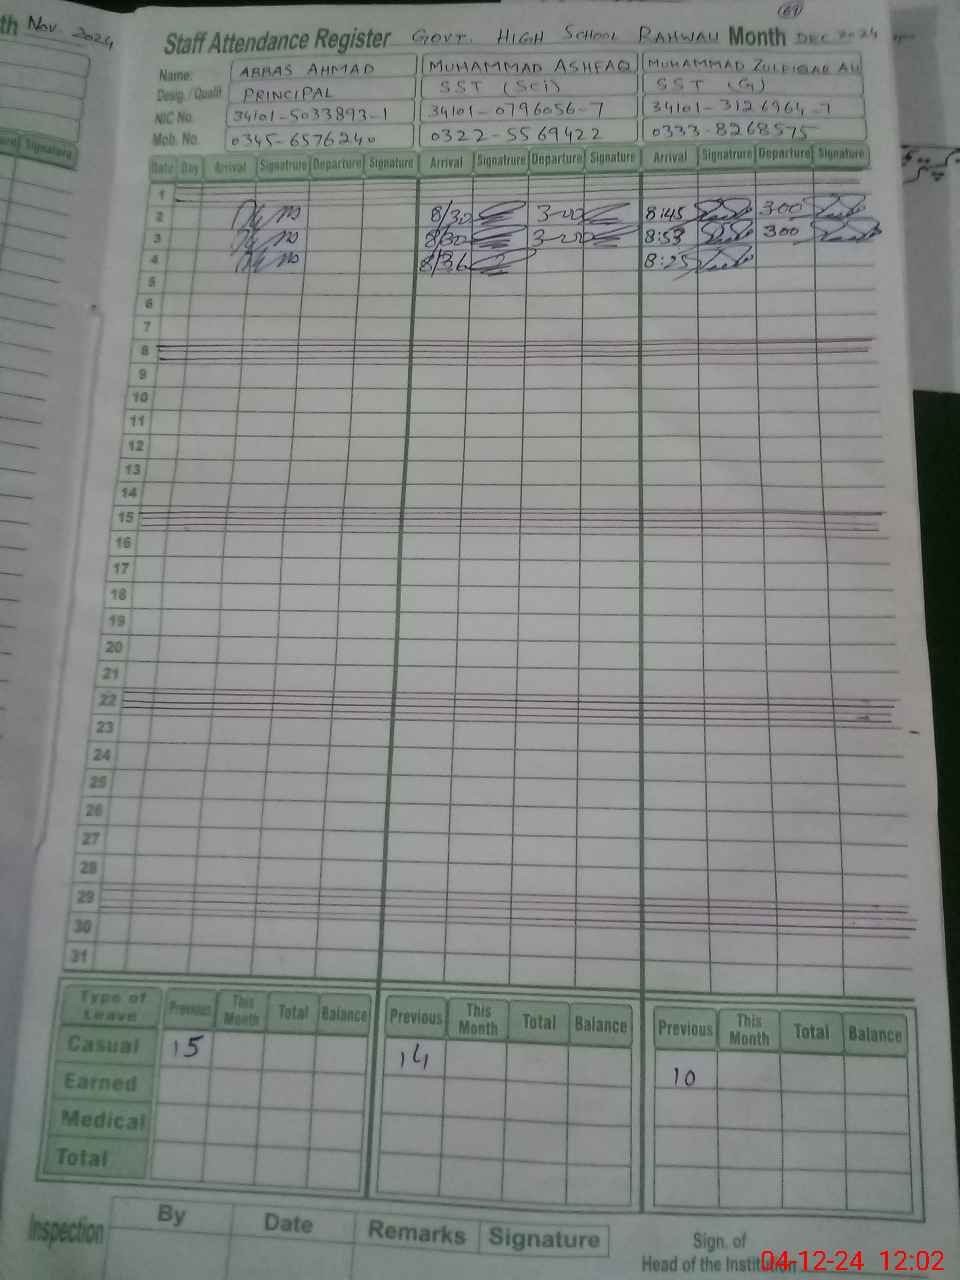 th Nov. 2024
Signature
(69)
Staff Attendance Register GOVT. HIGH SCHOOL RAHWALI Month DEC 2024
Name: ABBAS AHMAD MUHAMMAD ASHFAQ MUHAMMAD ZULFIQAR ALI
Desig. / Qualif. PRINCIPAL SST (Sci) SST (G)
NIC No. 34101-5033893-1 34101-0796056-7 34101-3126964-7
Mob. No. 0345-6576240 0322-5569422 0333-8268575
Date Day Arrival Signatrure Departure Signature Arrival Signatrure Departure Signature Arrival Signatrure Departure Signature
1
2 8/30 3-00 8:45 300
3 8/30 3-00 8:53 300
4 8/36 8:25
5
6
7
8
9
10
11
12
13
14
15
16
17
18
19
20
21
22
23
24
25
26
27
28
29
30
31
Type of Leave Previous This Month Total Balance Previous This Month Total Balance Previous This Month Total Balance
Casual 15 14 10
Earned
Medical
Total
Inspection By Date Remarks Signature
Sign. of
Head of the Institution
04-12-24 12:02